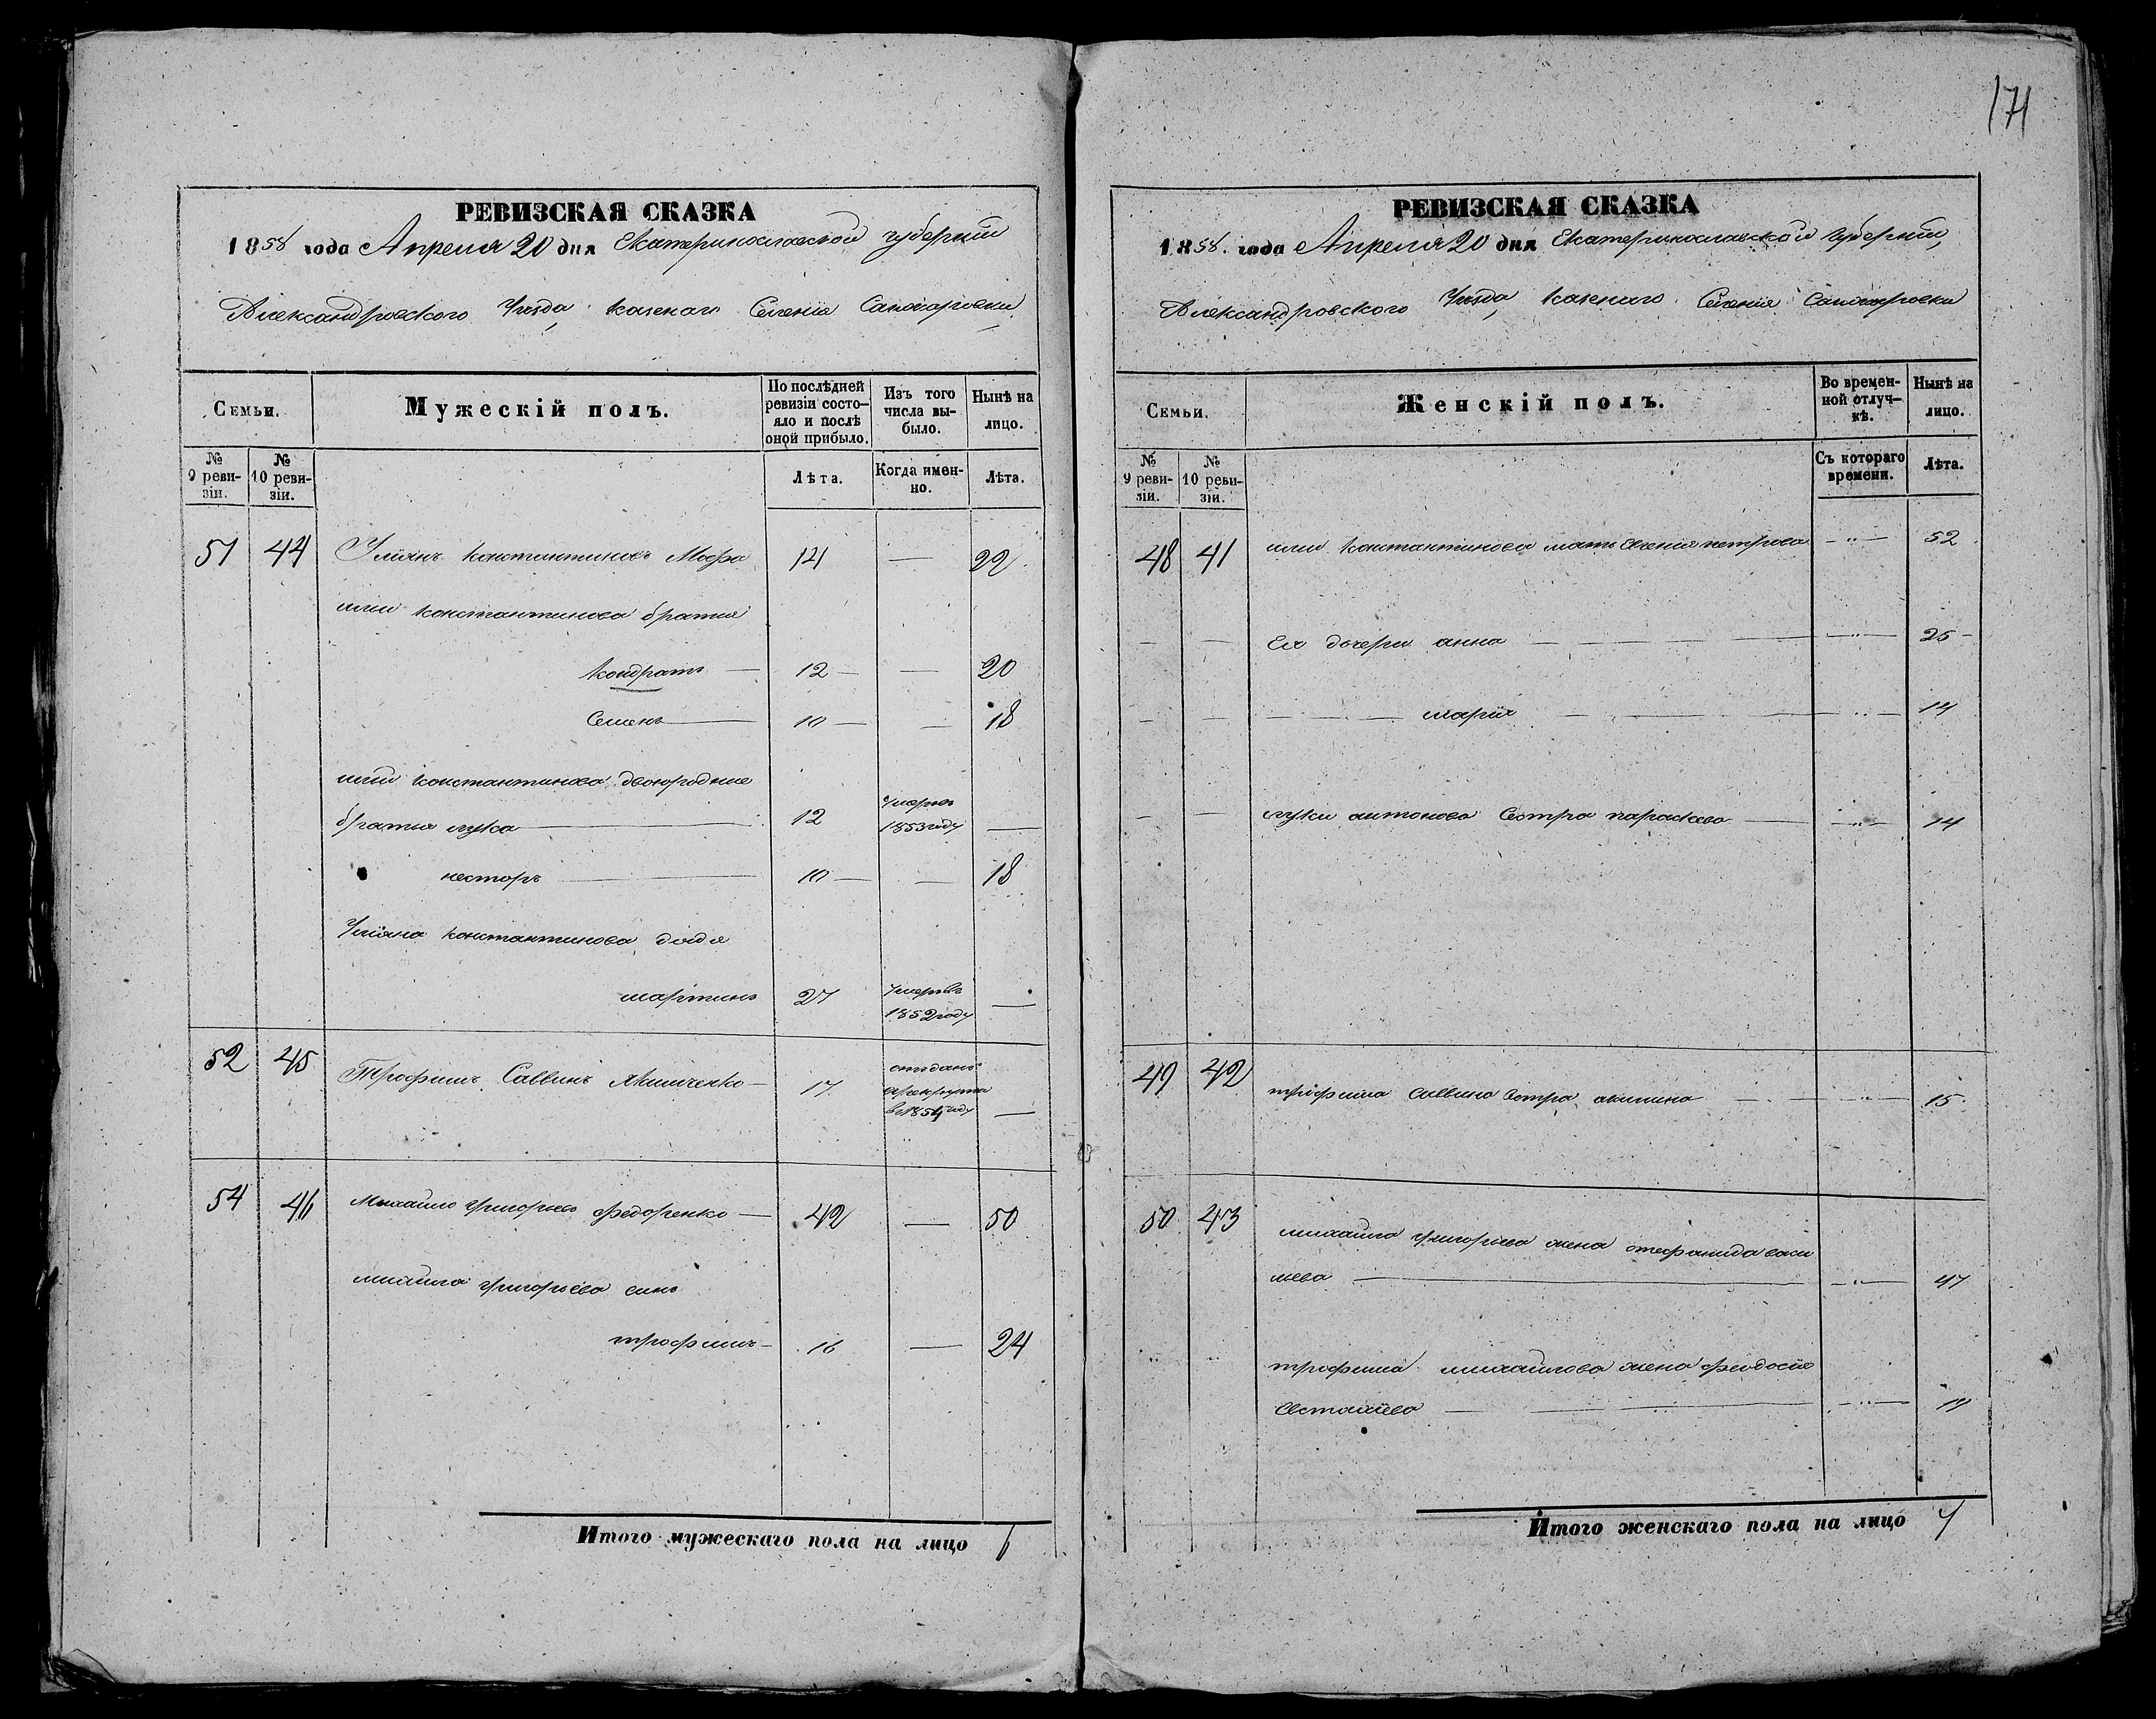 171
РЕВИЗСКАЯ СКАЗКА
1858 года Апреля 20 дня Екатеринославской губернии
Александровского Уезда, казенаго Селения
Семьи.
Мужескій полъ.
По послѣдней ревизіи состо-
яло и послѣ
оной прибыло.
Изъ того
числа вы-
было.
Нынѣ на
лицо.
№
9 реви-
зіи.
№
10 реви-
зіи.
Лѣта.
Когда имен-
но.
Лѣта.
51 44 Улиянъ Константиновъ 14 — 22
Константинова братья
Кондратъ — 12 — — 20
Семенъ — 10 — — 18
Константинова двоюродные
братья лука — 12 умеръ 1853 году —
несторъ — 10 — — 18
Улияна Константинова дядя
мартинъ 27 умеръ 1852 году —
52 45 Трофимъ Саввинъ Якименко — 17 отданъ
в 1854 году —
54 46 Михайло Григорьевъ Федоренко — 42 — 50
михайла Григорьева синъ
трофимъ — 16 — 24
Итого мужескаго пола на лицо 6
РЕВИЗСКАЯ СКАЗКА
1858. года Апреля 20 дня Екатеринославской губернии,
Александровского Уезда, казенаго Селения
Семьи.
Женскій полъ.
Во времен-
ной отлуч-
кѣ.
Нынѣ на
лицо.
№
9 реви-
зіи.
№
10 реви-
зіи.
Съ котораго
времени.
Лѣта.
48 41 Константинова мать Евгения петрова — „ — 52
— — Ея дочери анна — — „ — 25
— — — мария — — „ — 14
— — луки антонова Сестра параскева — — „ — 14
49 42 трофима Саввина Сестра акилина — — „ — 15
50 43 михайла григорьева жена стефанида васи
лева — — „ — 47
„ „ трофима михайлова жена феодосия
Евстафиева — — „ — 19
Итого женскаго пола на лицо 7